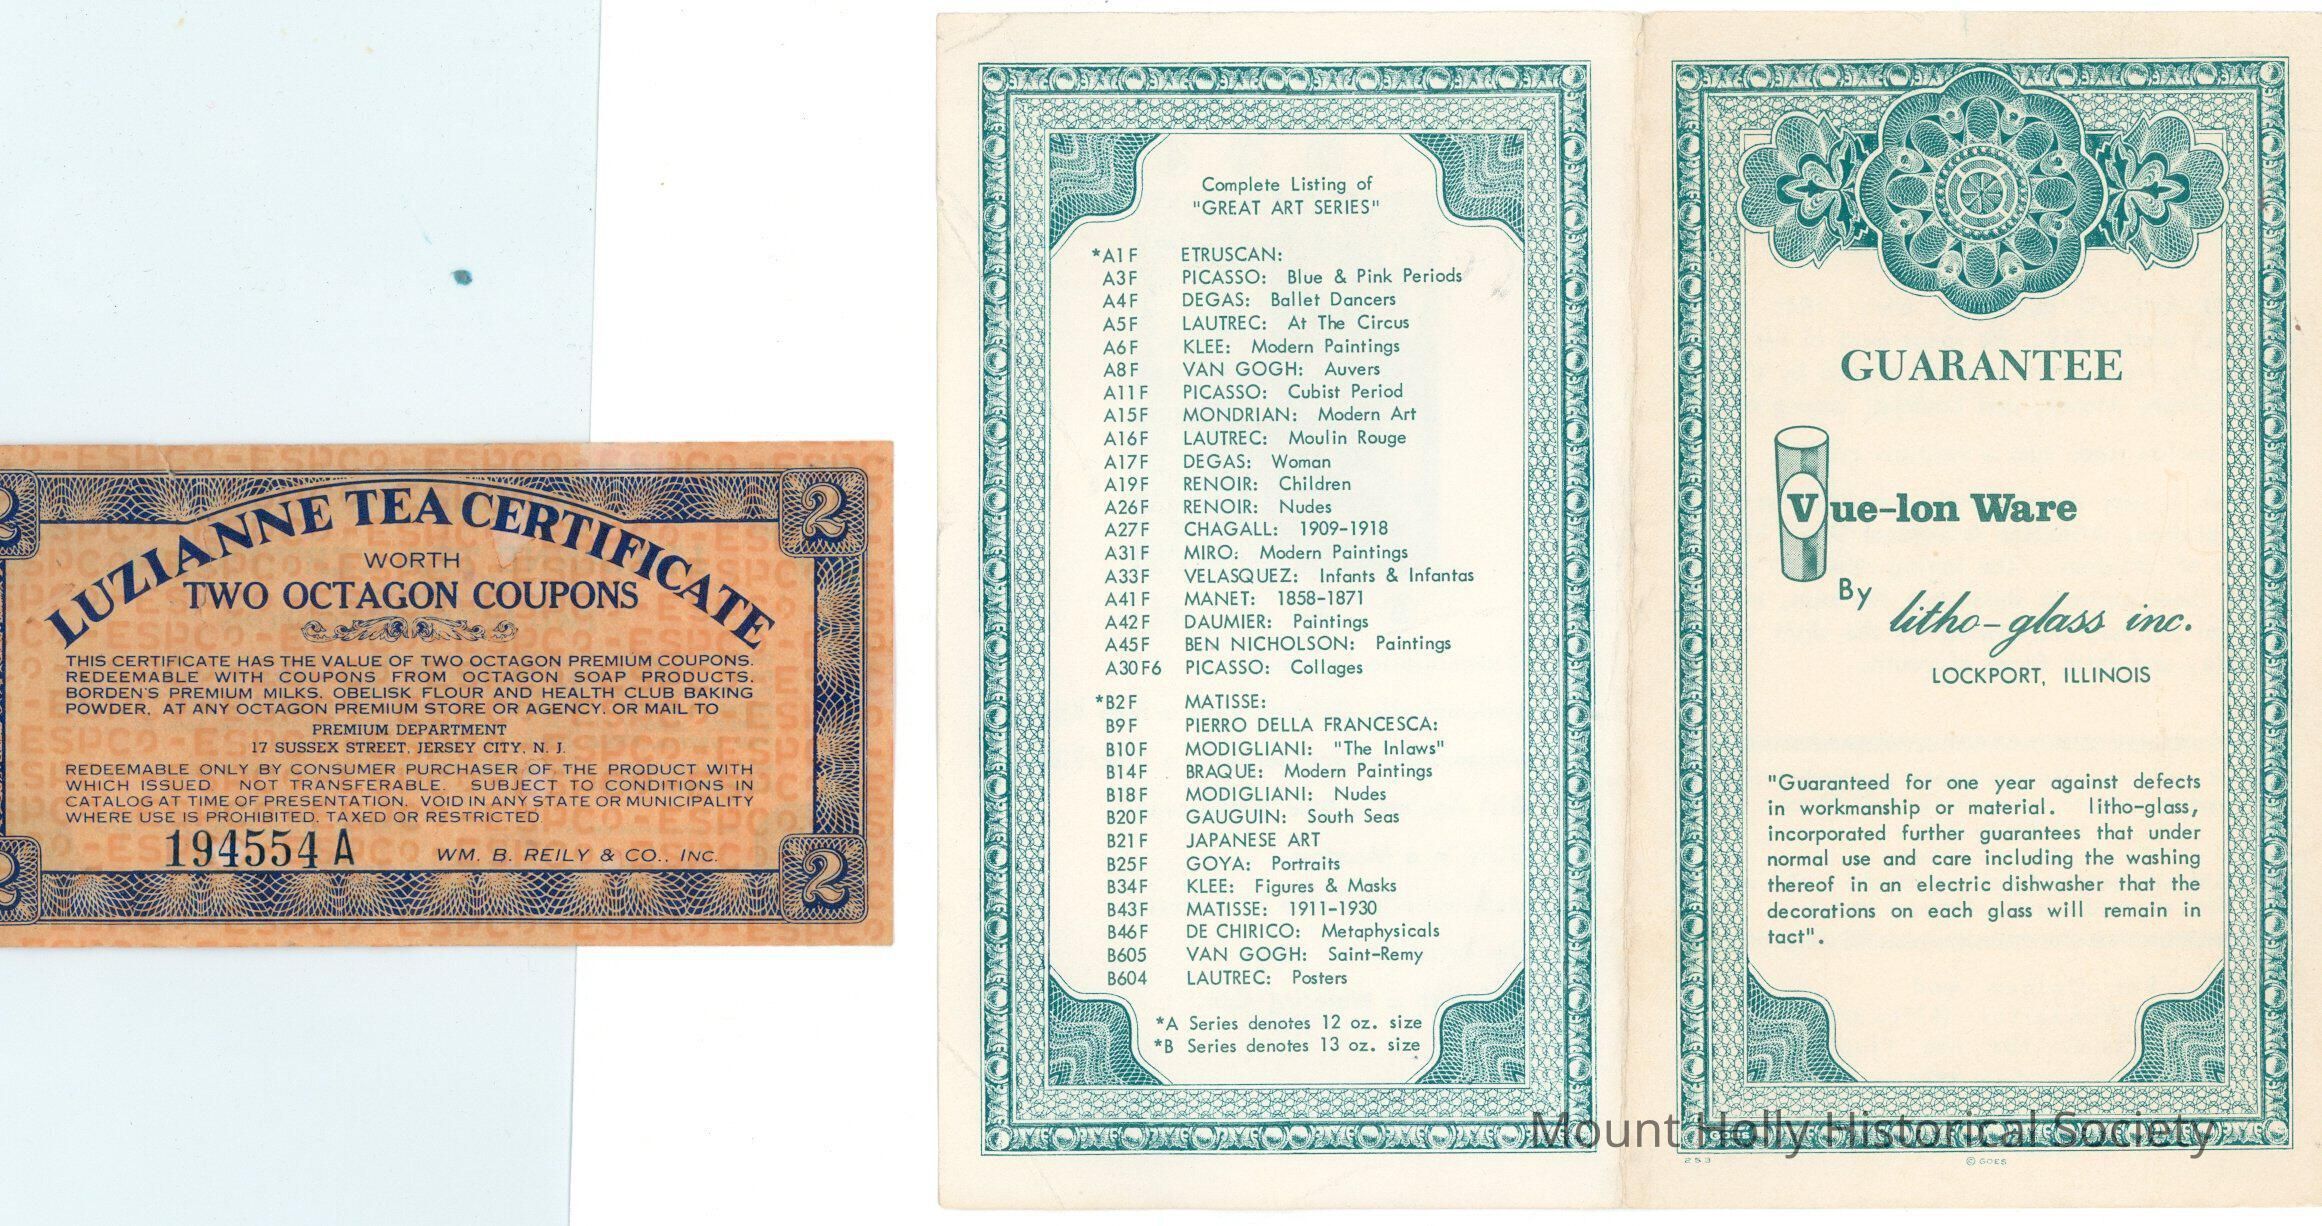 LUZIANNE TEA CERTIFICATE
WORTH
TWO OCTAGON COUPONS
THIS CERTIFICATE HAS THE VALUE OF TWO OCTAGON PREMIUM COUPONS.
REDEEMABLE WITH COUPONS FROM OCTAGON SOAP PRODUCTS.
BORDEN'S PREMIUM MILKS, OBELISK FLOUR AND HEALTH CLUB BAKING
POWDER, AT ANY OCTAGON PREMIUM STORE OR AGENCY, OR MAIL TO
PREMIUM DEPARTMENT
17 SUSSEX STREET, JERSEY CITY, N. J.
REDEEMABLE ONLY BY CONSUMER PURCHASER OF THE PRODUCT WITH
WHICH ISSUED. NOT TRANSFERABLE. SUBJECT TO CONDITIONS IN
CATALOG AT TIME OF PRESENTATION. VOID IN ANY STATE OR MUNICIPALITY
WHERE USE IS PROHIBITED, TAXED OR RESTRICTED.
194554 A WM. B. REILY & CO., INC.
2
2
2
2
Complete Listing of
"GREAT ART SERIES"
*A1F ETRUSCAN:
A3F PICASSO: Blue & Pink Periods
A4F DEGAS: Ballet Dancers
A5F LAUTREC: At The Circus
A6F KLEE: Modern Paintings
A8F VAN GOGH: Auvers
A11F PICASSO: Cubist Period
A15F MONDRIAN: Modern Art
A16F LAUTREC: Moulin Rouge
A17F DEGAS: Woman
A19F RENOIR: Children
A26F RENOIR: Nudes
A27F CHAGALL: 1909-1918
A31F MIRO: Modern Paintings
A33F VELASQUEZ: Infants & Infantas
A41F MANET: 1858-1871
A42F DAUMIER: Paintings
A45F BEN NICHOLSON: Paintings
A30F6 PICASSO: Collages
*B2F MATISSE:
B9F PIERRO DELLA FRANCESCA:
B10F MODIGLIANI: "The Inlaws"
B14F BRAQUE: Modern Paintings
B18F MODIGLIANI: Nudes
B20F GAUGUIN: South Seas
B21F JAPANESE ART
B25F GOYA: Portraits
B34F KLEE: Figures & Masks
B43F MATISSE: 1911-1930
B46F DE CHIRICO: Metaphysicals
B605 VAN GOGH: Saint-Remy
B604 LAUTREC: Posters
*A Series denotes 12 oz. size
*B Series denotes 13 oz. size
GUARANTEE
Vue-lon Ware
By litho-glass inc.
LOCKPORT, ILLINOIS
"Guaranteed for one year against defects
in workmanship or material. litho-glass,
incorporated further guarantees that under
normal use and care including the washing
thereof in an electric dishwasher that the
decorations on each glass will remain in
tact".
Mount Holly Historical Society
253 © GOES